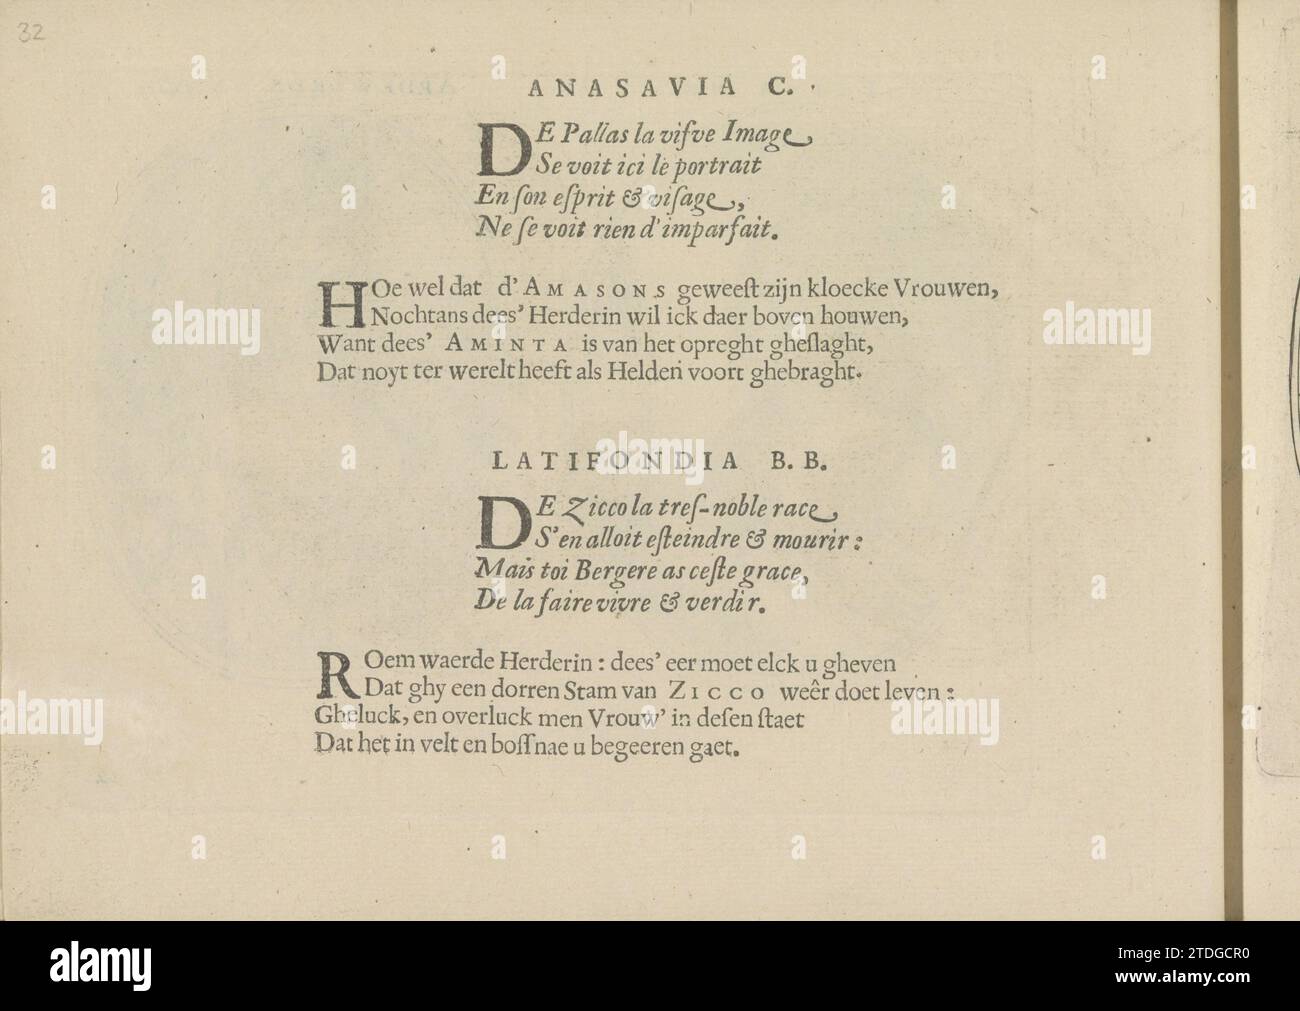 32
ANASAVIA C.
DE Pallas la vifve Image
Se voit ici le portrait
En ſon eſprit & viſage,
Ne ſe voit rien d'imparfait.
HOe wel dat d'AMASONS geweeſt zijn kloecke Vrouwen,
Nochtans dees' Herderin wil ick daer boven houwen,
Want dees' AMINTA is van het opreght gheſlaght,
Dat noyt ter werelt heeft als Helden voort ghebraght.
LATIFONDIA B. B.
DE Zicco la treſ-noble race
S'en alloit eſteindre & mourir:
Mais toi Bergere as ceſte grace,
De la faire vivre & verdir.
ROem waerde Herderin: dees' eer moet elck u gheven
Dat ghy een dorren Stam van ZICCO weêr doet leven:
Gheluck, en overluck men Vrouw' in deſen ſtaet
Dat het in velt en boſſ nae u begeeren gaet.
alamy
alamy
alamy
alamy
alamy
alamy
Image ID: 2TDGCR0
www.alamy.com